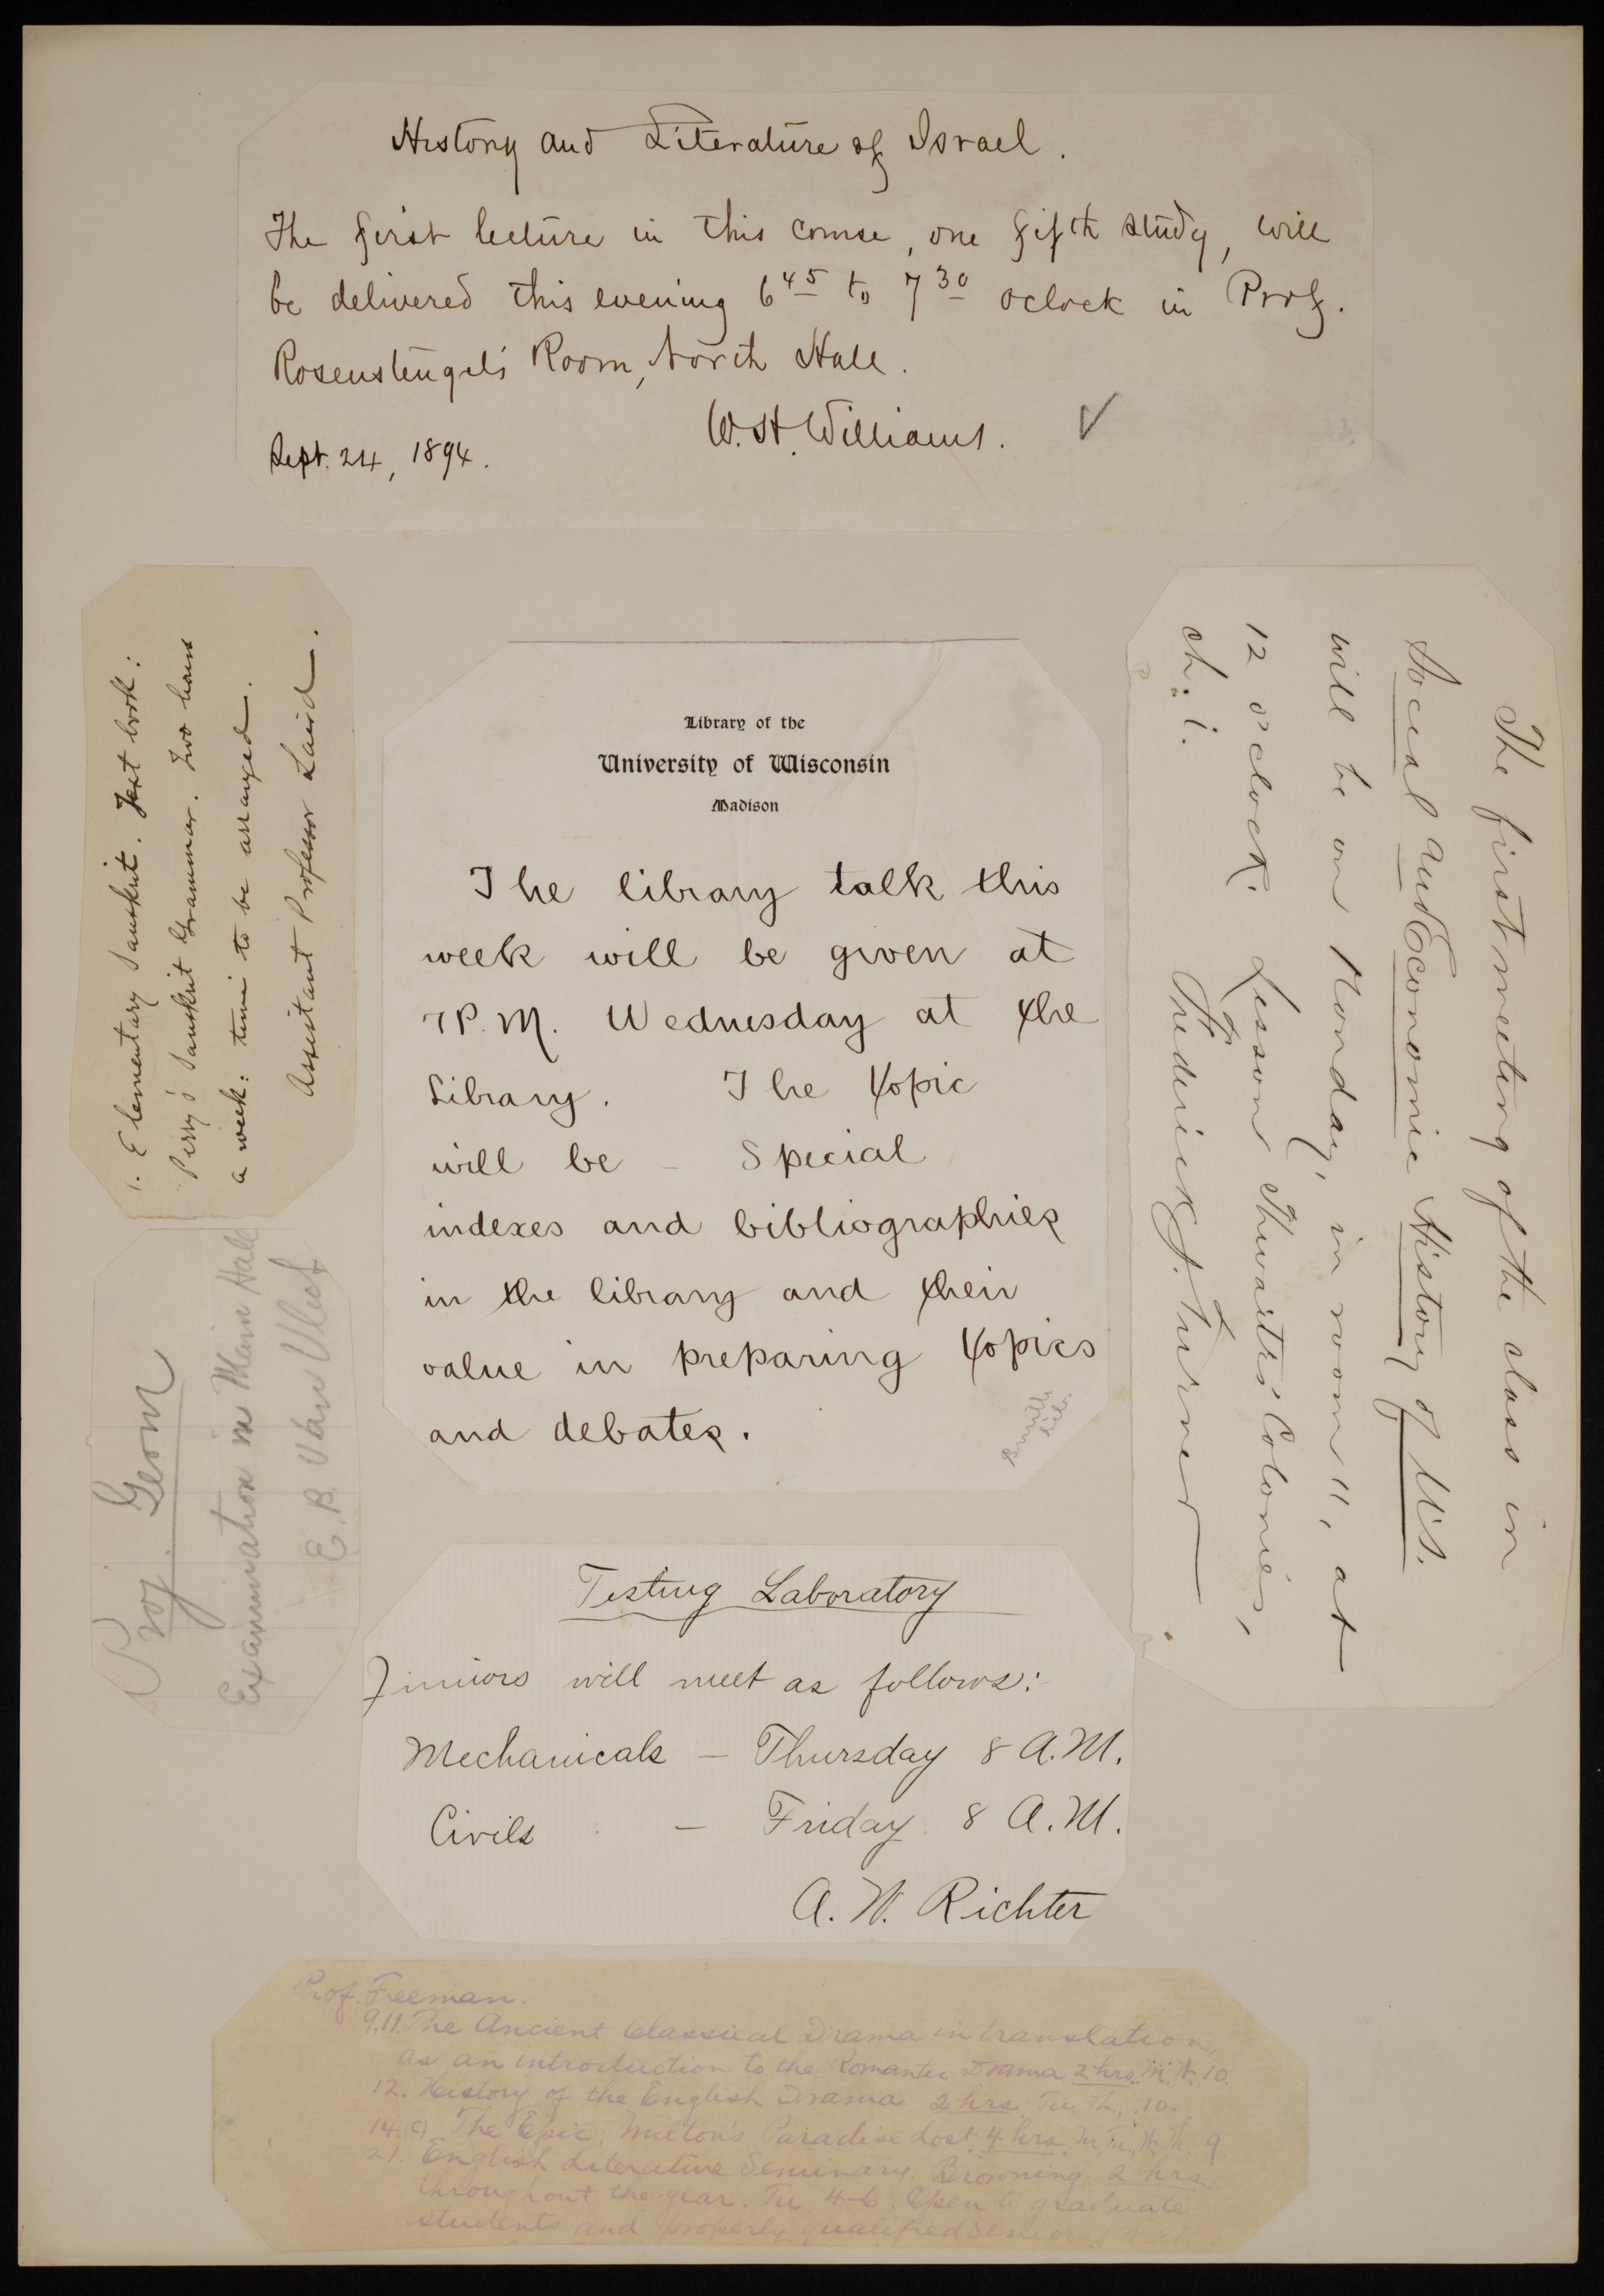 History and Literature of Israel.
The first lecture in this course, one fifth study, will
be delivered this evening 6 45 to 7 30 oclock in Prof.
Rosenstengel's Room, North Hall.
W. H. Williams.
Sept. 24, 1894.
1. Elementary Sanskrit. Text book:
Perry's Sanskrit Grammar. Two hours
a week: time to be arranged.
Assistant Professor Laird.
Library of the
University of Wisconsin
Madison
The library talk this
week will be given at
7 P.M. Wednesday at the
Library. The topic
will be – Special
indexes and bibliographies
in the library and their
value in preparing topics
and debates.
The first meeting of the class in
Social and Economic History of U.S.
will be on Monday, in room 11, at
12 o'clock. Lesson Thwaites' Colonies,
ch. i.
Frederick J. Turner
Proj. Geom
Examination in Main Hall
E. B. Van Vleck
Testing Laboratory
Juniors will meet as follows:
Mechanicals – Thursday 8 A.M.
Civils – Friday 8 A.M.
A. W. Richter
Prof. Freeman.
9.11. The Ancient Classical Drama in translation,
as an introduction to the Romantic Drama 2 hrs. M. W. 10.
12. History of the English Drama 2 hrs. Tu. Th., 10.
14. The Epic; Milton's Paradise Lost. 4 hrs. M, Tu, W, Th. 9
21. English Literature Seminary. Browning 2 hrs.
throughout the year. Tu 4-6. Open to graduate
students and properly qualified Seniors